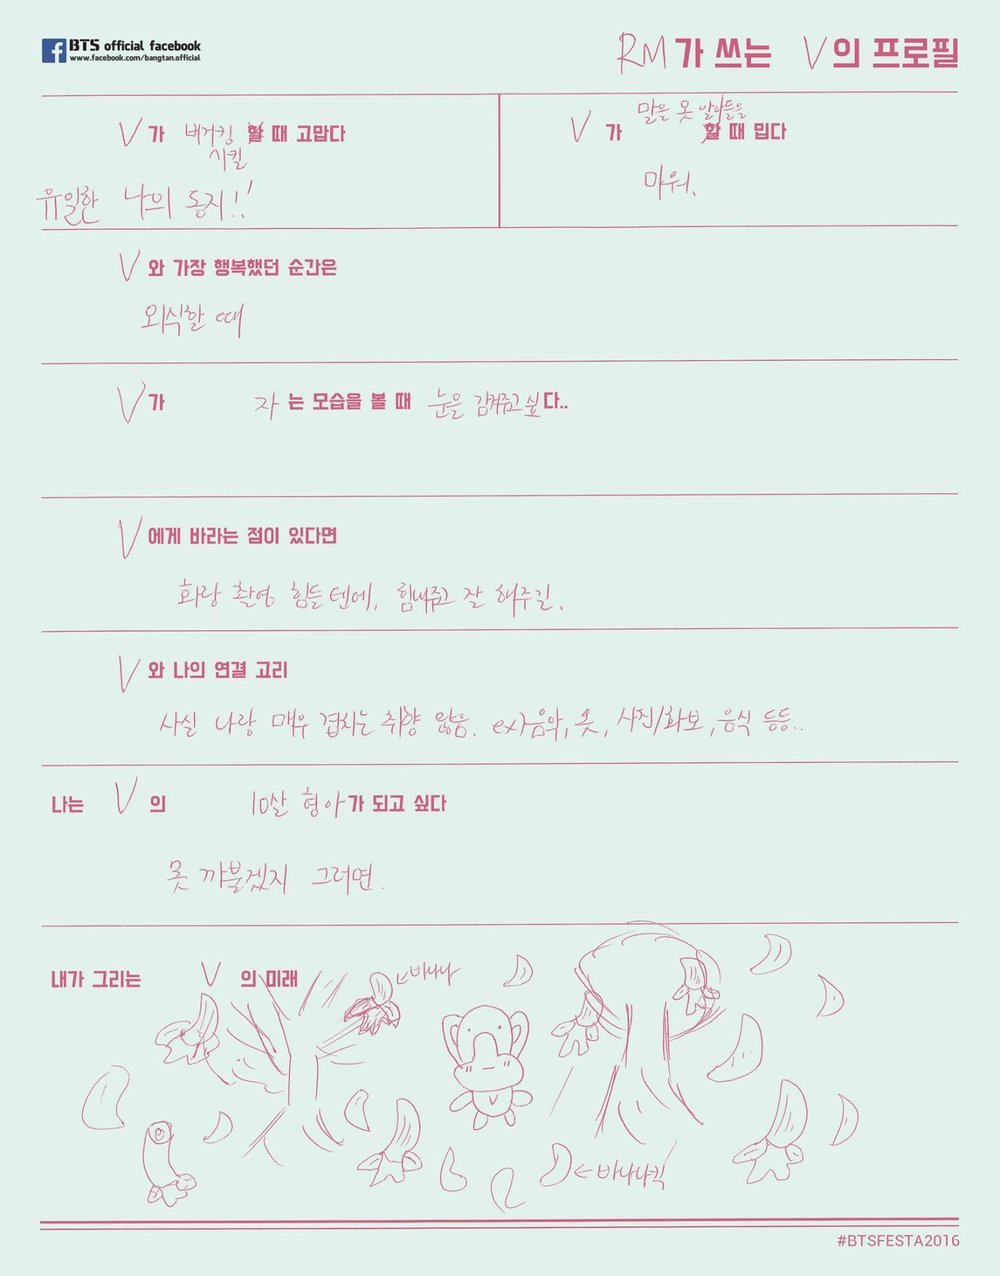 BTS official facebook
www.facebook.com/bangtan.official
RM가 쓰는 V의 프로필
V가 버거킹 시킬 할 때 고맙다
유일한 나의 동지!!
V가 말을 못 알아들을 할 때 밉다
마워.
V와 가장 행복했던 순간은
외식할 때
V가 자는 모습을 볼 때 눈을 감겨주고 싶다..
V에게 바라는 점이 있다면
화랑 촬영 힘들텐데, 힘내주고 잘 해주길.
V와 나의 연결 고리
사실 나랑 매우 겹치는 취향 많음. ex)음악, 옷, 사진/화보, 음식 등등..
나는 V의 10살 형아가 되고 싶다
못 까불겠지 그러면.
내가 그리는 V의 미래
바나나
V
바나나킥
#BTSFESTA2016